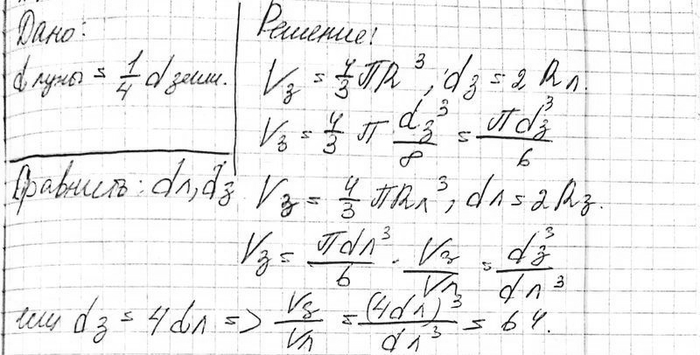 Дано:
d луны = 1/4 d земли.
Сравнить: dл, dз
Решение:
Vз = 4/3 πR³, dз = 2 Rл.
Vз = 4/3 π dз³/8 = πdз³/6
Vз = 4/3 πRл³, dл = 2Rз.
Vз = πdл³/6 · Vз/Vл = dз³/dл³
или dз = 4dл => Vз/Vл = (4dл)³/dл³ = 64.